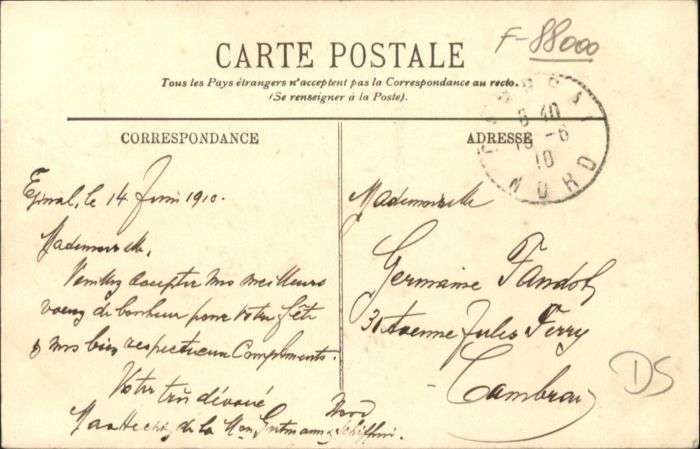 F-88000
CARTE POSTALE
Tous les Pays étrangers n'acceptent pas la Correspondance au recto.
(Se renseigner à la Poste).
CORRESPONDANCE
Epinal, le 14 Juin 1910.
Mademoiselle,
Veuillez accepter mes meilleurs
voeux de bonheur pour votre fête
& mes bien respectueux Compliments.
Votre très dévoué
de la Mon Gutmann & Schiffrei.
ADRESSE
Mademoiselle
Germaine Fandoh
Avenue Jules Ferry
Cambrai
Nord
8 40
15-6
10
NORD
DS